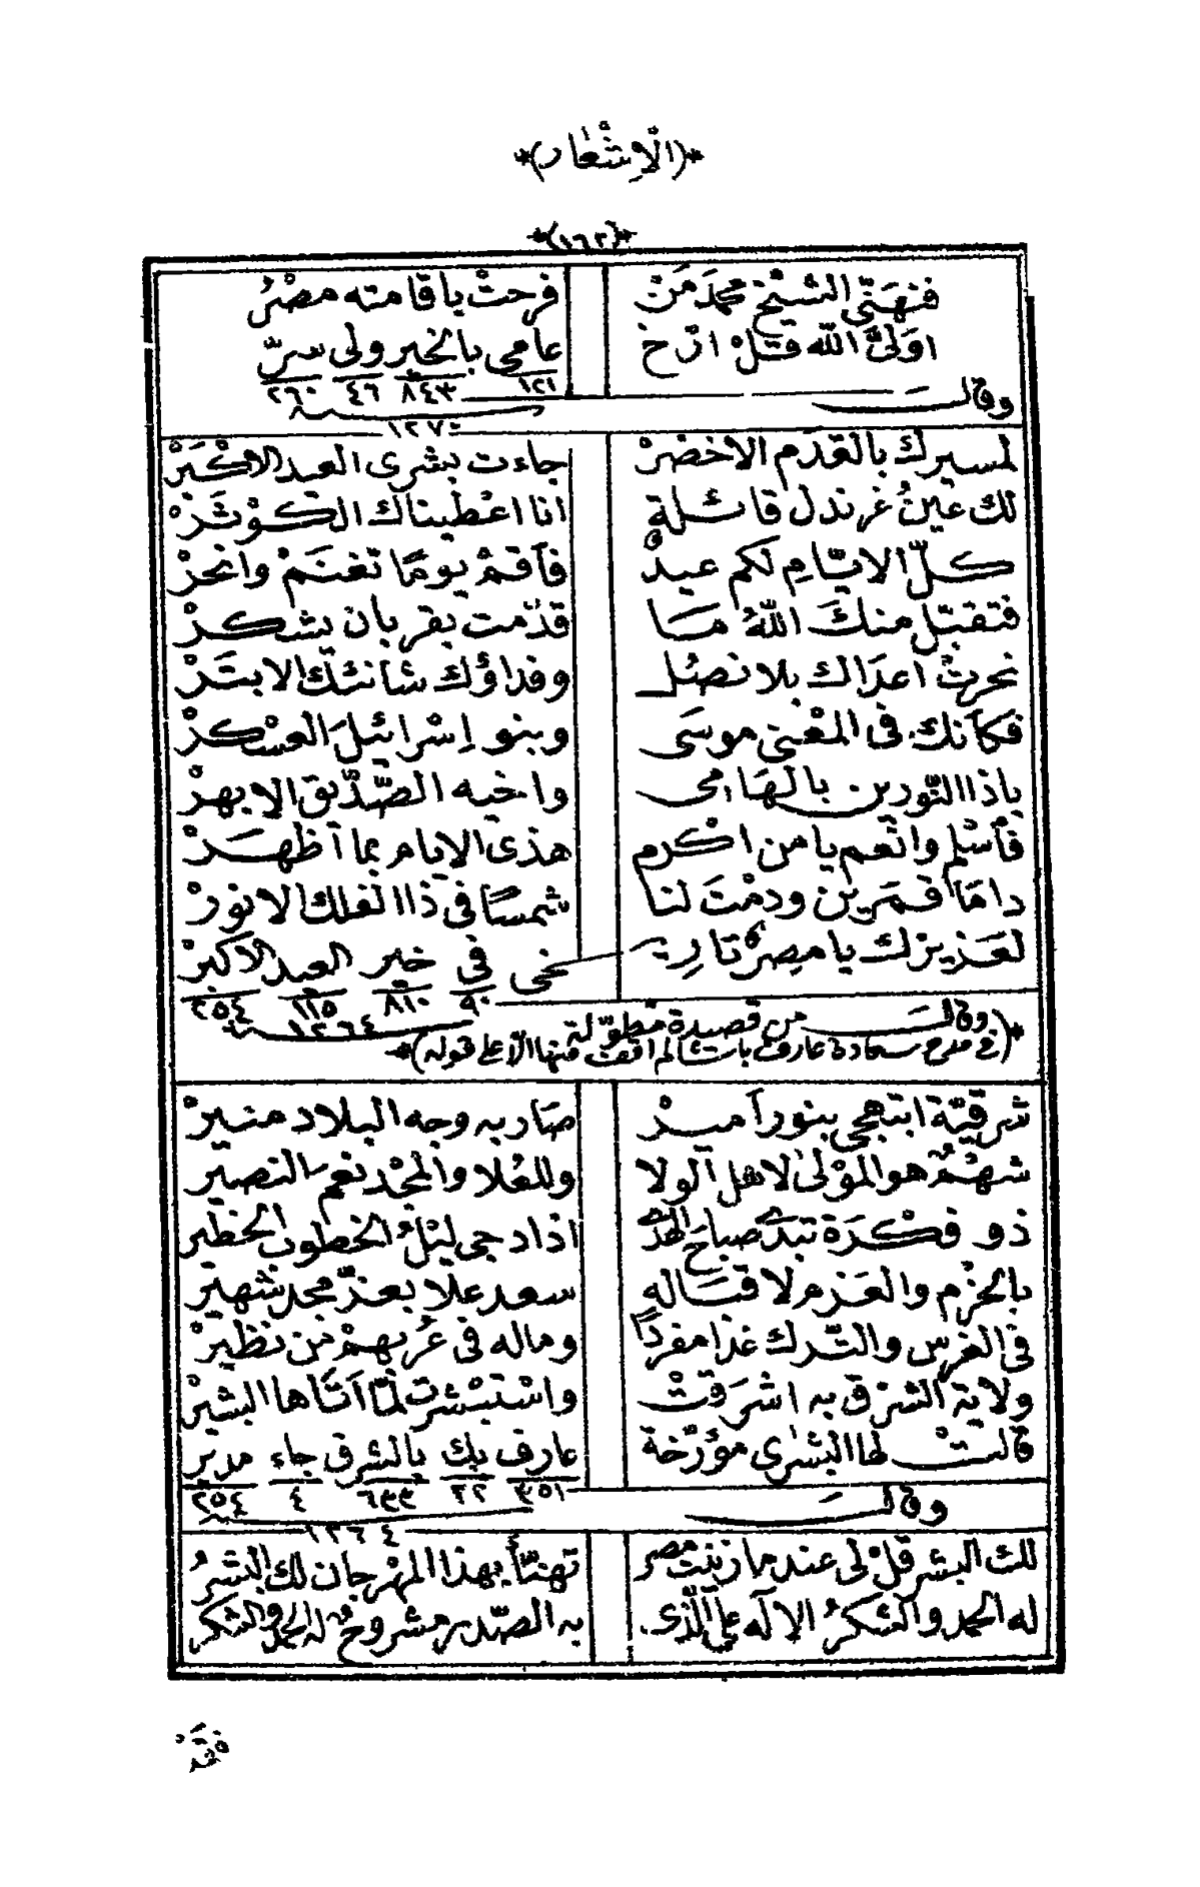 *(الْاِشْعَار)*
*(١٦٢)*
فتهنّى الشيخ محمد مَنْ فرحتْ باقامته مصْرُ
اوليّ الله قلْ ارّخ عامى بالخير ولى سرّ
١٢١ ٨٤٣ ٤٦ ٢٦٠
وقالـــت
١٢٧٠
لمسيرك بالقدَم الاخضرْ جاءت بشرى العيد الاكْبَرْ
لك عينُ غرندل قائلةٌ انا اعْطيناك الكوْثَرْ
كلّ الايّامِ لكم عيدْ فأقمْ يومًا تغنَمْ وانحرْ
فتقبّل منكَ اللّهُ مَا قدّمت بقربان يشكرْ
نحرتْ اعدَاك بلا نصْل وفداؤك شانئك الابتَرْ
فكأنك فى المعْنى موسَى وبنو اِسْرائلَ العسْكرْ
ياذا النّورين بالهَامى واخيه الصّدّيق الابهرْ
فأسْلم وانْعم يا من اكْرم هذى الايام بما أظهَرْ
دامَا قمَرين ودمْتَ لنا شمسًا فى ذا الفلك الانورْ
لعَزيزك يا مصرُ تاريـ ـخى فى خير العيد الاكبرْ
٩٠ ٨١٠ ١١٥ ٢٥٤
١٢٦٤
*(وقالـــت من قصيدة مطوّلة
فى مدح سعادة عارف باشا لم اقف منها الّا على قوله)*
شرقيّة ابتهجى بنور آمرْ صَار به وجه البلاد منيرْ
شهْمٌ هو المَوْلىٰ لاهل الولا وللعُلا والمجْد نعم النصير
ذو فكْرَة تبْدى صباحَ الهدى اذا دجى ليْلُ الخطوب الخطير
بالحزم والعَزم لا قسَاله سعد علا بعزّ مجد شهير
فى الفرس والتّرك غدا مفردًا وماله فى عُربهمْ من نظيرْ
ولاية الشرق به اشرَقتْ واسْتبْشرت لمّا اتَاها البشيْر
قالتْ لها البشرٰى مؤرّخة عارف بك بالشرق جاء مدير
٣٥١ ٢٢ ٦٣٣ ٤ ٢٥٤
وقالـــت
١٢٦٤
لك البشر قلْ لى عندما زينت مصر تهنّأ بهذا المهْرجان لك البشرُ
له الحمد والشكرُ الالَه على الّذى به الصّدر مشروحٌ له الحمد والشكر
فقَدْ